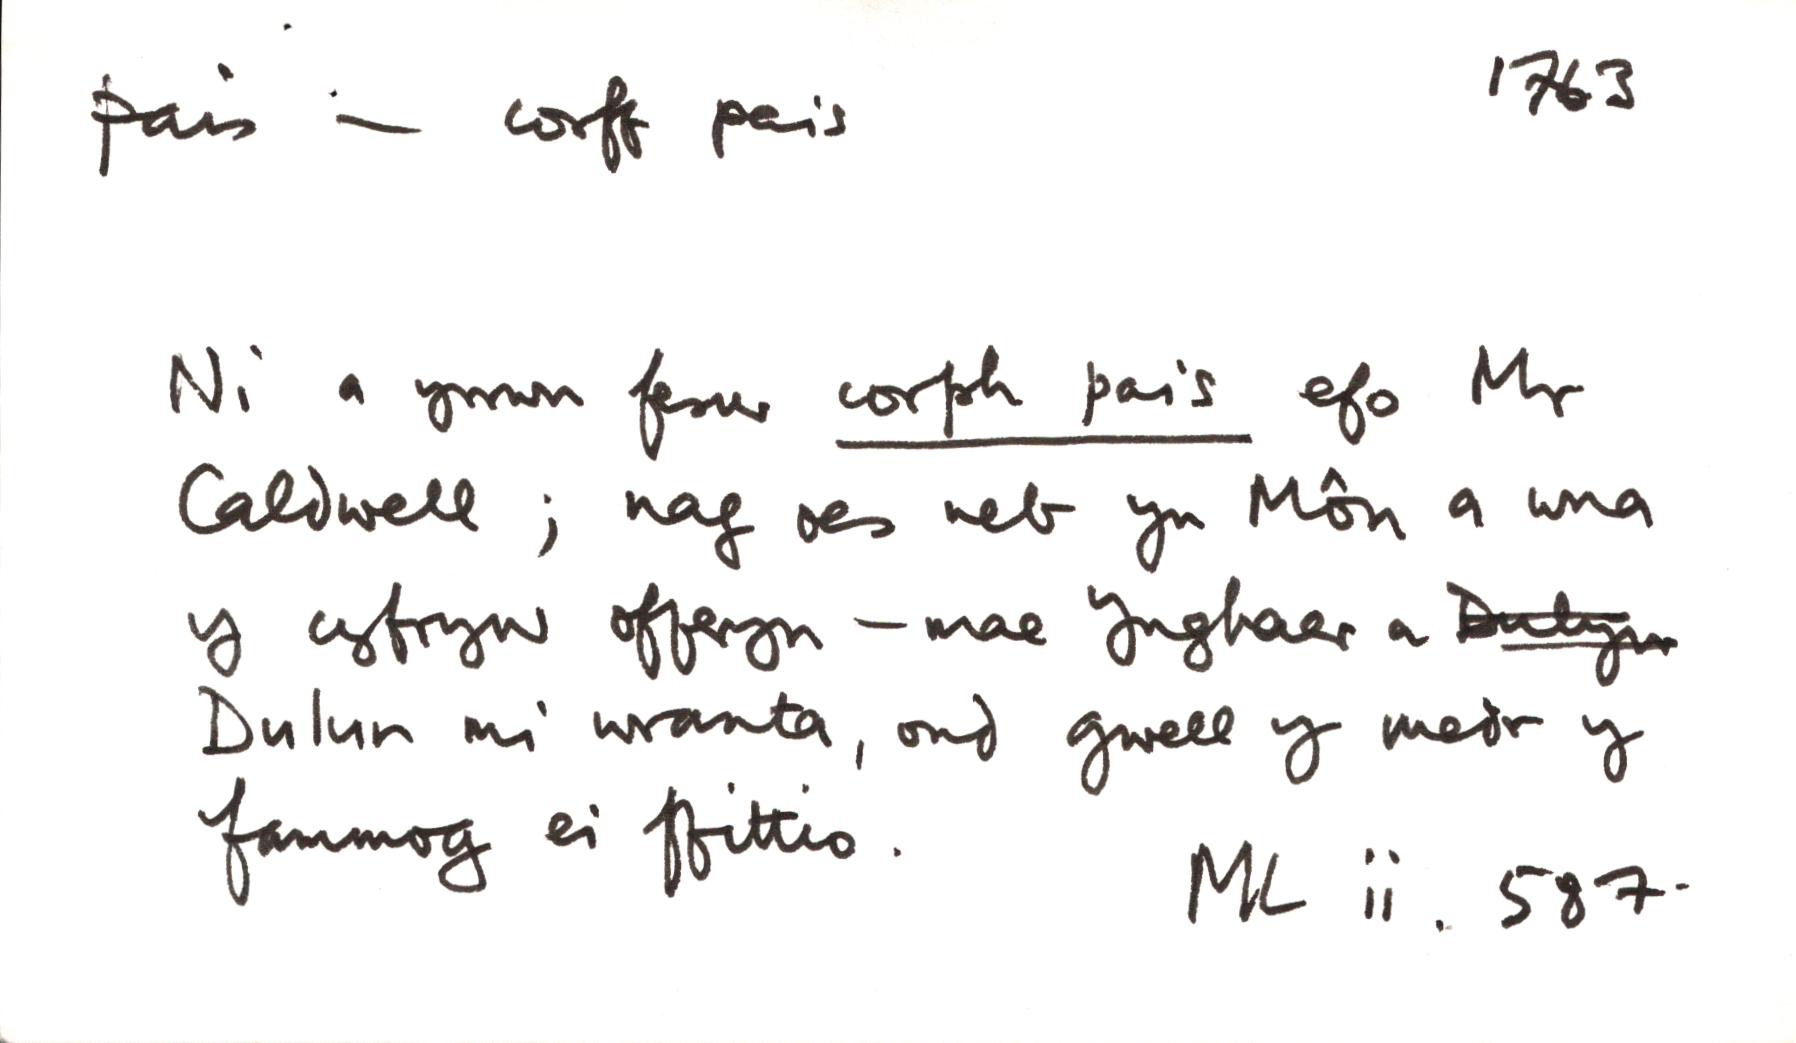 pais — corff pais 1763
Ni a yrrwn fesur corph pais efo Mr
Caldwell ; nag oes neb yn Môn a wna
y cyfryw offeryn – mae Ynghaer a Dulyn
Dulun mi wranta, ond gwell y medr y
fammog ei ffittio.
ML ii. 587.